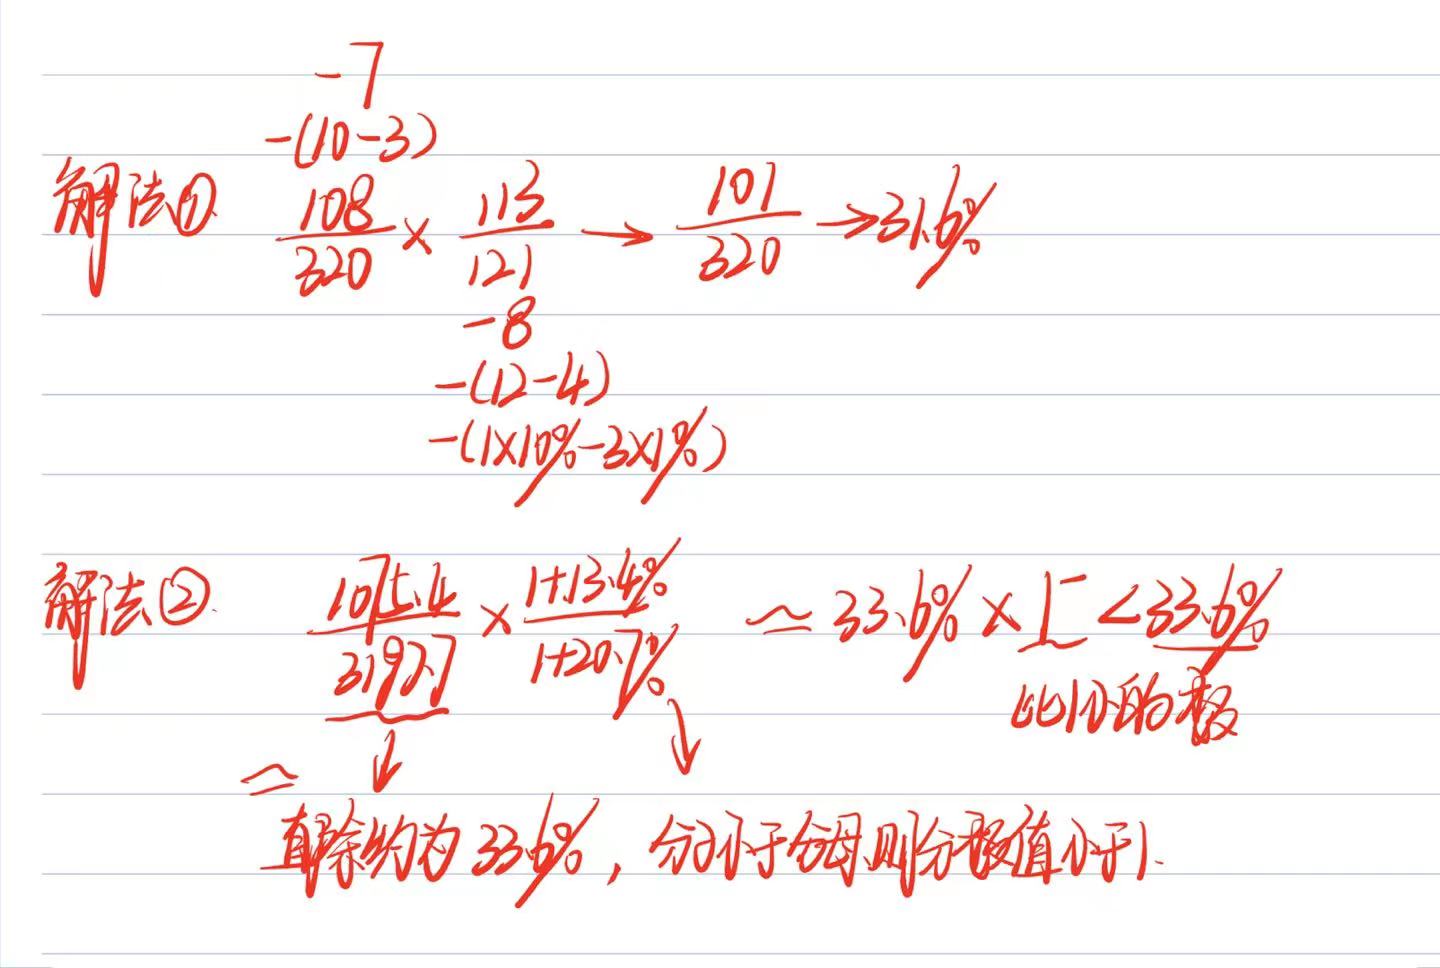 -7
-(10-3)
解法① 108/320 × 113/121 → 101/320 → 31.6%
-8
-(12-4)
-(1×10%-3×1%)
解法② 1075.4/3197.7 × 1+13.4%/1+20.7% ≈ 33.6% × 1- < 33.6%
比1小的数
≈
直除约为33.6%，分子小于分母则分数值小于1.